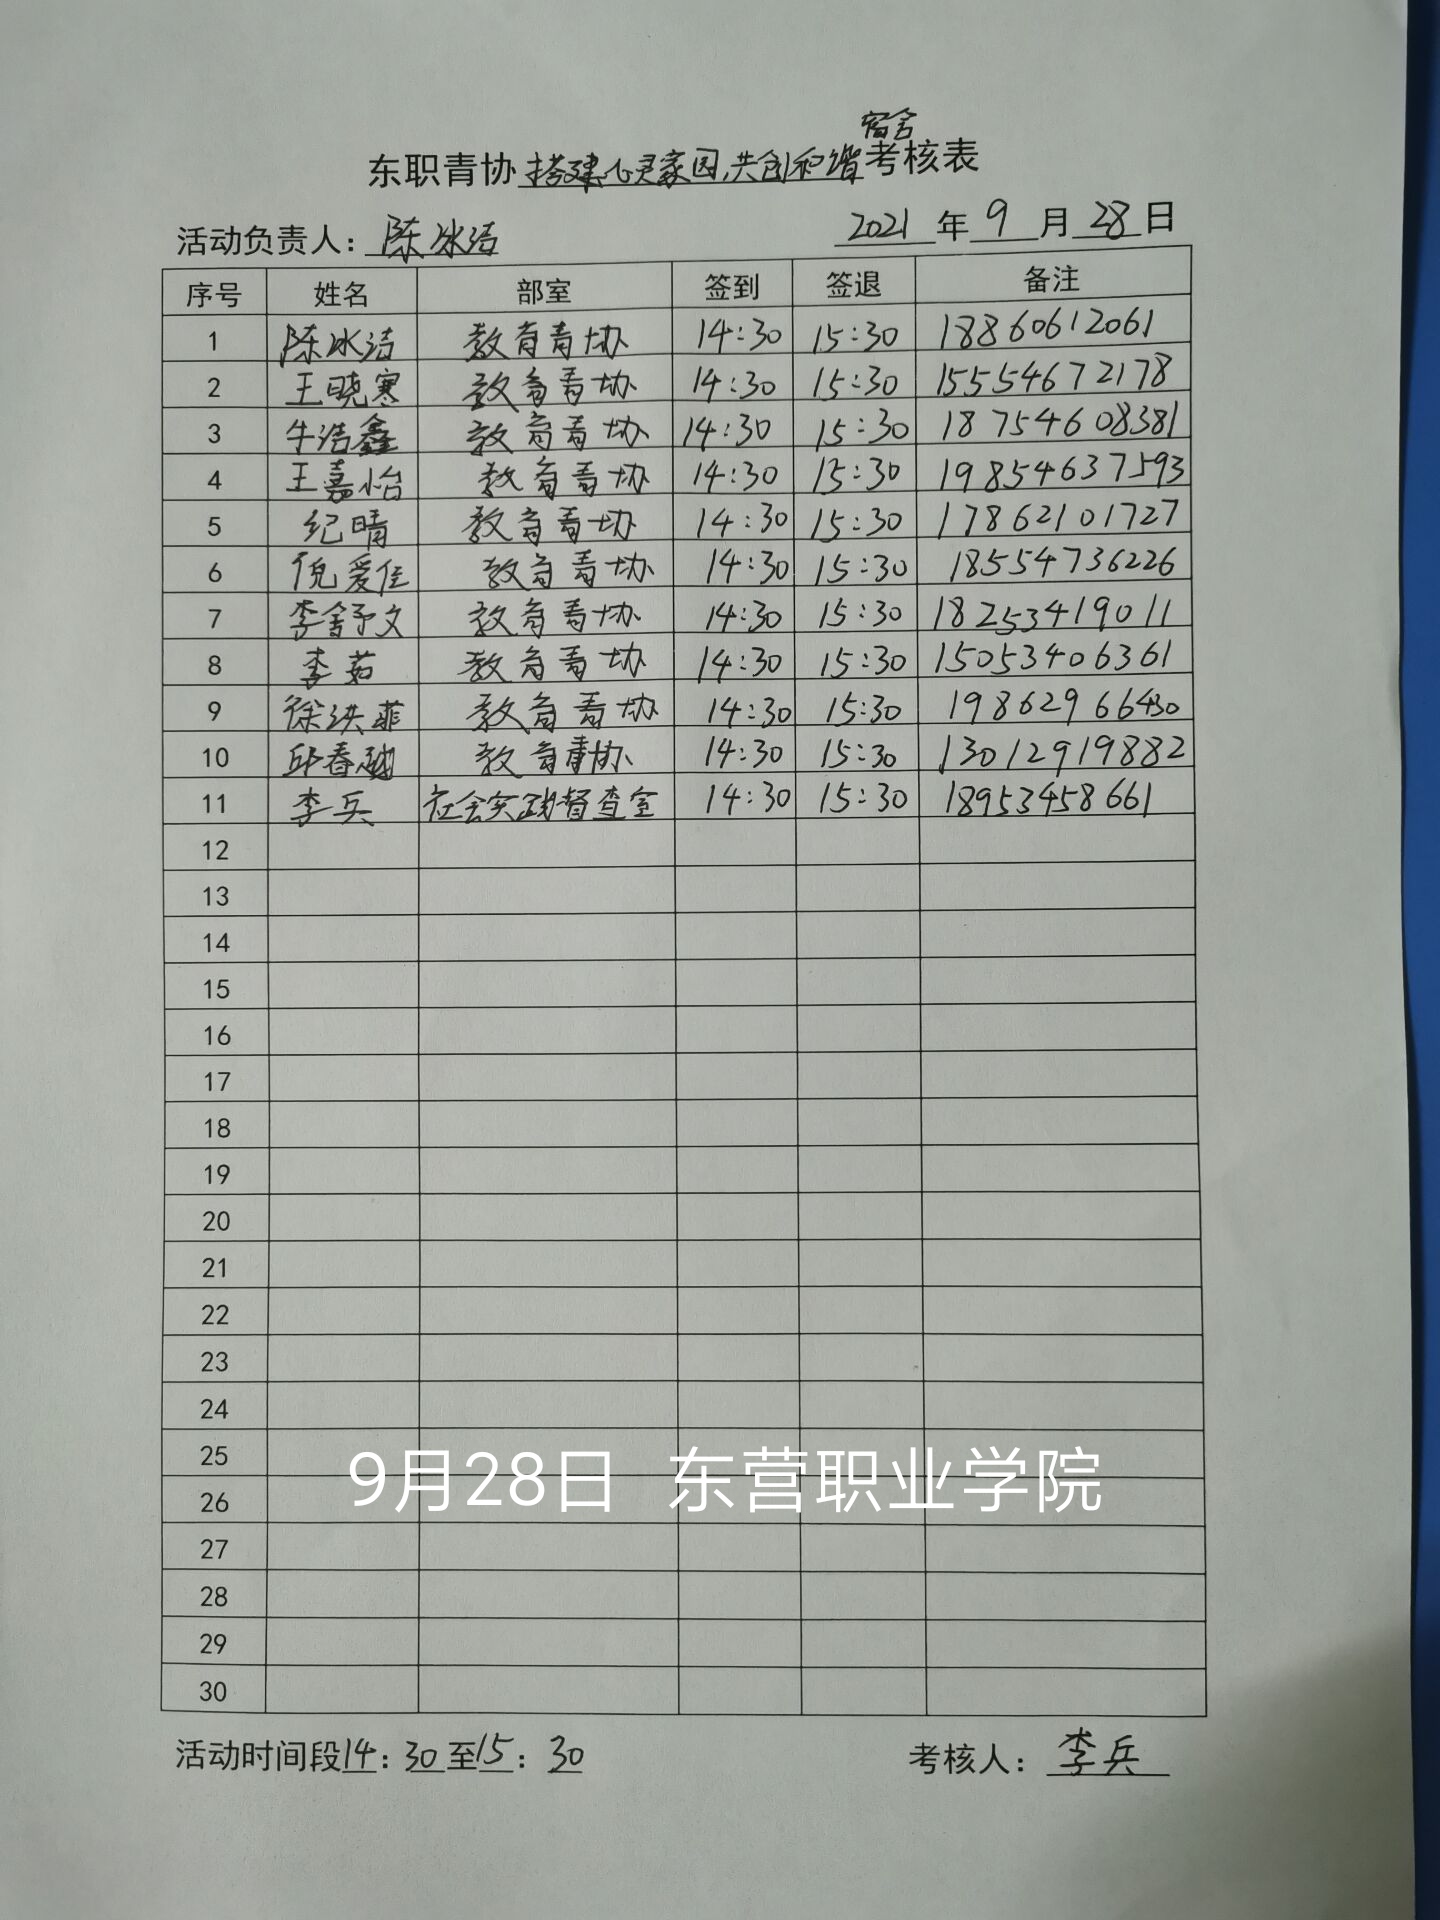 宿舍
东职青协搭建心灵家园,共创和谐考核表
活动负责人：陈冰洁 2021年9月28日
序号 姓名 部室 签到 签退 备注
1 陈冰洁 教育青协 14:30 15:30 18860612061
2 王晓寒 教育青协 14:30 15:30 15554672178
3 牛洁鑫 教育青协 14:30 15:30 18754608381
4 王嘉怡 教育青协 14:30 15:30 19854637593
5 纪晴 教育青协 14:30 15:30 17862101727
6 倪爱佳 教育青协 14:30 15:30 18554736226
7 李舒文 教育青协 14:30 15:30 18253419011
8 李茹 教育青协 14:30 15:30 15053406361
9 徐洪菲 教育青协 14:30 15:30 19862966430
10 邱春越 教育青协 14:30 15:30 13012919882
11 李兵 社会实践督查室 14:30 15:30 18953458661
12
13
14
15
16
17
18
19
20
21
22
23
24
25
9月28日 东营职业学院
26
27
28
29
30
活动时间段14：30至15：30 考核人：李兵